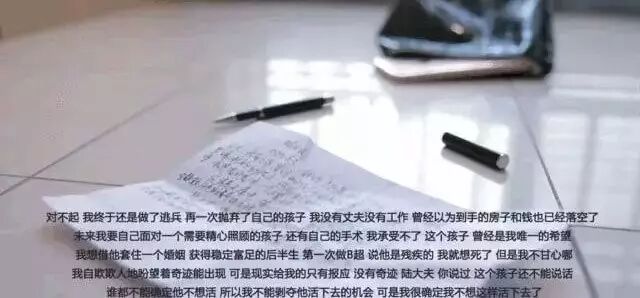 对不起 我终于还是做了逃兵 再一次抛弃了自己的孩子 我没有丈夫没有工作 曾经以为到手的房子和钱也已经落空了
未来我要自己面对一个需要精心照顾的孩子 还有自己的手术 我承受不了 这个孩子 曾经是我唯一的希望
我想借他套住一个婚姻 获得稳定富足的后半生 第一次做B超 说他是残疾的 我就想死了 但是我不甘心哪
我自欺欺人地盼望着奇迹能出现 可是现实给我的只有报应 没有奇迹 陆大夫 你说过 这个孩子还不能说话
谁都不能确定他不想活 所以我不能剥夺他活下去的机会 可是我很确定我不想这样活下去了